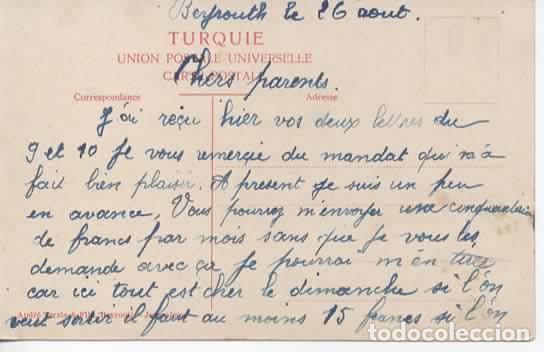 Beyrouth le 26 aout.
TURQUIE
UNION POSTALE UNIVERSELLE
CARTE POSTALE
Chers parents.
Correspondance
Adresse
J'ai reçu hier vos deux lettres du
9 et 10 Je vous remercie du mandat qui m'a
fait bien plaisir. A present je suis un peu
en avance. Vous pourrez m'envoyer une cinquantaine
de francs par mois sans que je vous les
demande avec ça je pourrai m'en
car ici tout est cher le dimanche si l'on
veut sortir il faut au moins 15 francs si l'on
todocoleccion